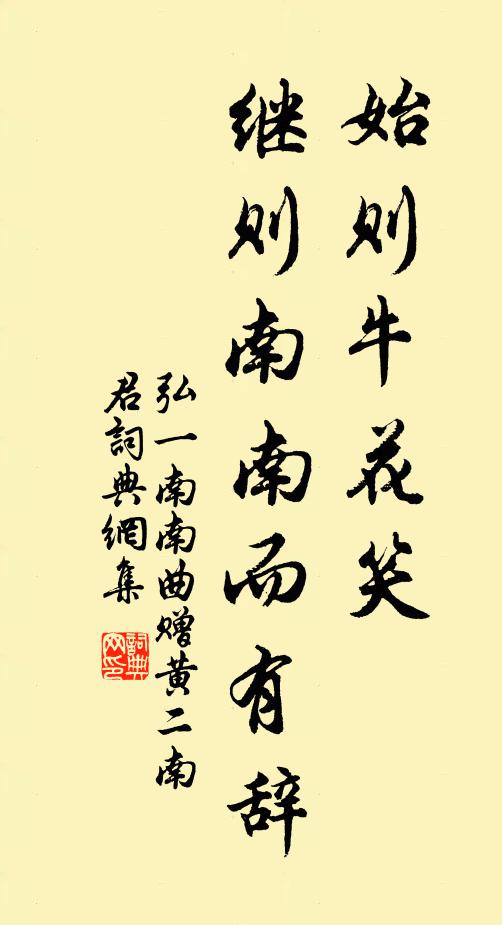 始则牛花笑
继则南南而有辞
弘一南南曲赠黄二南
君詞典網集
詞典网印